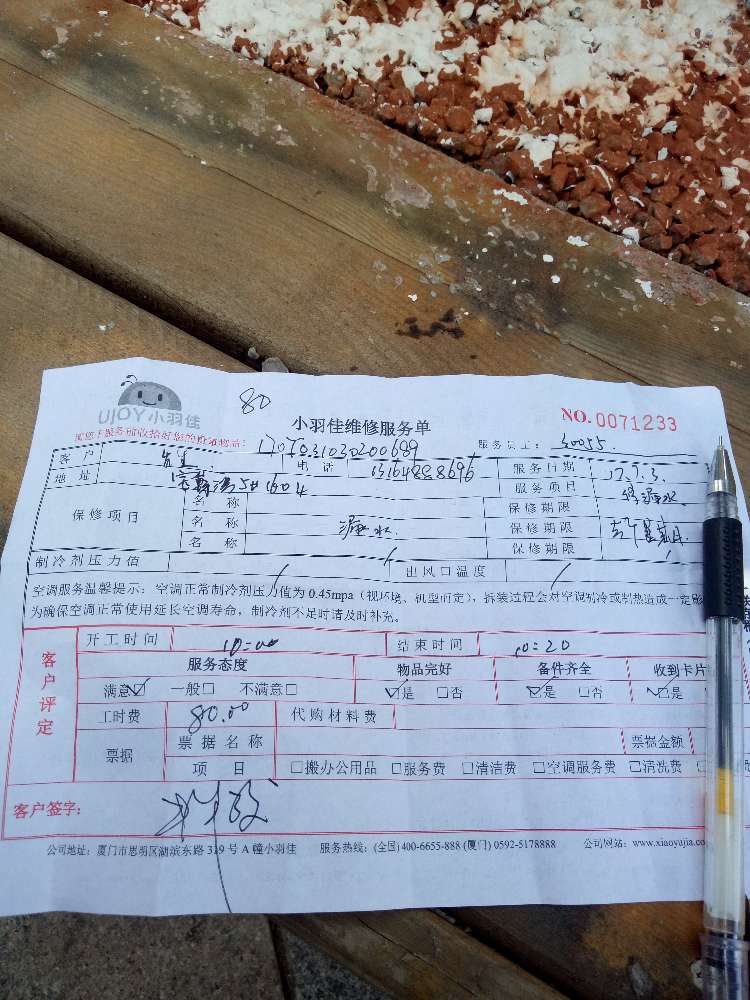 UJOY小羽佳
80
小羽佳维修服务单
NO.0071233
请您于服务前收拾好您的贵重物品:
1707031030200689
服务员工: 30055.
客户 先生
电话 13164888696
服务日期 17.7.3.
地址 604
服务项目 修漏水
保修项目
名称
保修期限
名称 漏水
保修期限
名称
保修期限
制冷剂压力值 /
出风口温度 /
空调服务温馨提示:空调正常制冷剂压力值为0.45mpa(视环境、机型而定),拆装过程会对空调制冷或制热造成一定影
为确保空调正常使用延长空调寿命,制冷剂不足时请及时补充。
客户评定
开工时间 10=00
结束时间 10=20
服务态度
物品完好
备件齐全
收到卡片
满意☑ 一般□ 不满意□
☑是 □否
☑是 □否
☑是
工时费 80.00
代购材料费
票据
票据名称
票据金额
项目
□搬办公用品 □服务费 □清洁费 □空调服务费 □清洗费
客户签字:
公司地址:厦门市思明区湖滨东路319号A幢小羽佳 服务热线:(全国)400-6655-888 (厦门) 0592-5178888 公司网站:www.xiaoyujia.co